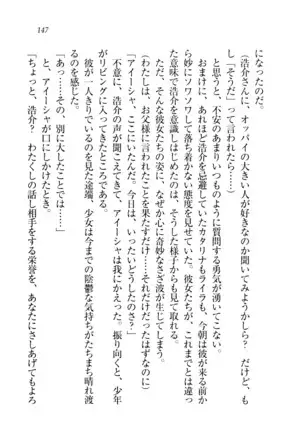 147
になったのだ。
（浩介さんに、オッパイの大きい人が好きなのか聞いてみようかしら？　だけど、も
し「そうだ」って言われたら……）
と思うと、不安のあまりいつものように質問する勇気が湧いてこない。
おまけに、あれほど浩介を忌避していたカタリナもライラも、今朝は彼が来る前か
ら妙にソワソワして落ち着かない態度を見せていた。彼女たちが、これまでとは違っ
た意味で浩介を意識しはじめたのは、そうした様子からも見て取れる。
ただ、そんな彼女たちの姿に、なぜか心に奇妙なさざ波が生じてしまう。
（わたしは、お父様に言われたことを果たすだけ……それだけだったはずなのに）
「アイーシャ、ここにいたのか？　いったいどうしたのさ？」
不意に、浩介の声が聞こえてきて、アイーシャは我にかえった。振り向くと、少年
がリビングに入ってきたところである。
彼が一人きりでいるのを見た途端、少女は今までの陰鬱な気持ちがたちまち晴れ渡
るのを感じた。
「あっ……その、別に大したことでは……」
と、アイーシャが口にしかけたとき。
「ちょっと、浩介？　わたくしの話し相手をする栄誉を、あなたにさしあげてもよろ